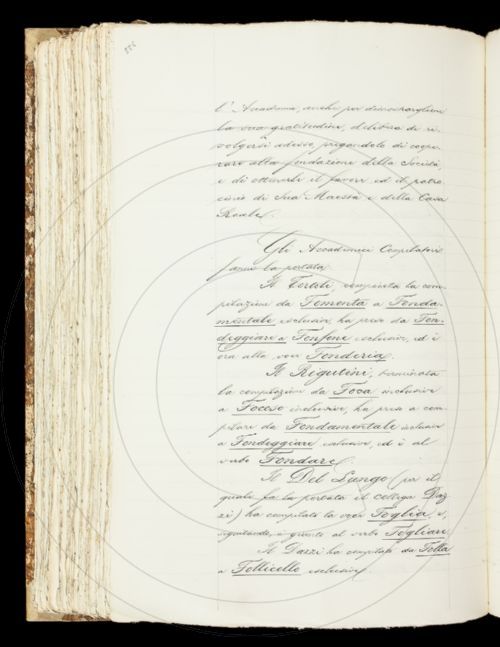 l'Accademia, anche per dimostrargliene
la sua gratitudine, delibera di ri-
volgersi adesso, pregandolo di coope-
rare alla fondazione della Società,
e di ottenerle il favore ed il patro-
cinio di Sua Maestà e della Casa
Reale.
Gli Accademici Compilatori
fanno la portata.
Il Tortoli, compiuta la com-
pilazione da Fomenta a Fonda-
mentale esclusive, ha preso da Fon-
deggiare a Fonfone esclusive, ed è
ora alla voce Fonderia.
Il Rigutini, terminata
la compilazione da Foca inclusive
a Focoso inclusive, ha preso a com-
pilare da Fondamentale inclusive
a Fondeggiare esclusive, ed è al
verbo Fondare.
Il Del Lungo (per il
quale fa la portata il collega Daz-
zi) ha compilato la voce Foglia e,
seguitando, è giunto al verbo Fogliare.
Il Dazzi ha compilato da Folla
a Follicello esclusive.